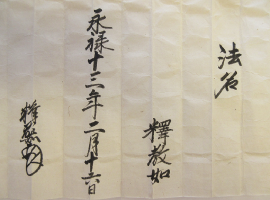 法名
釋教如
永禄十三年二月十六日